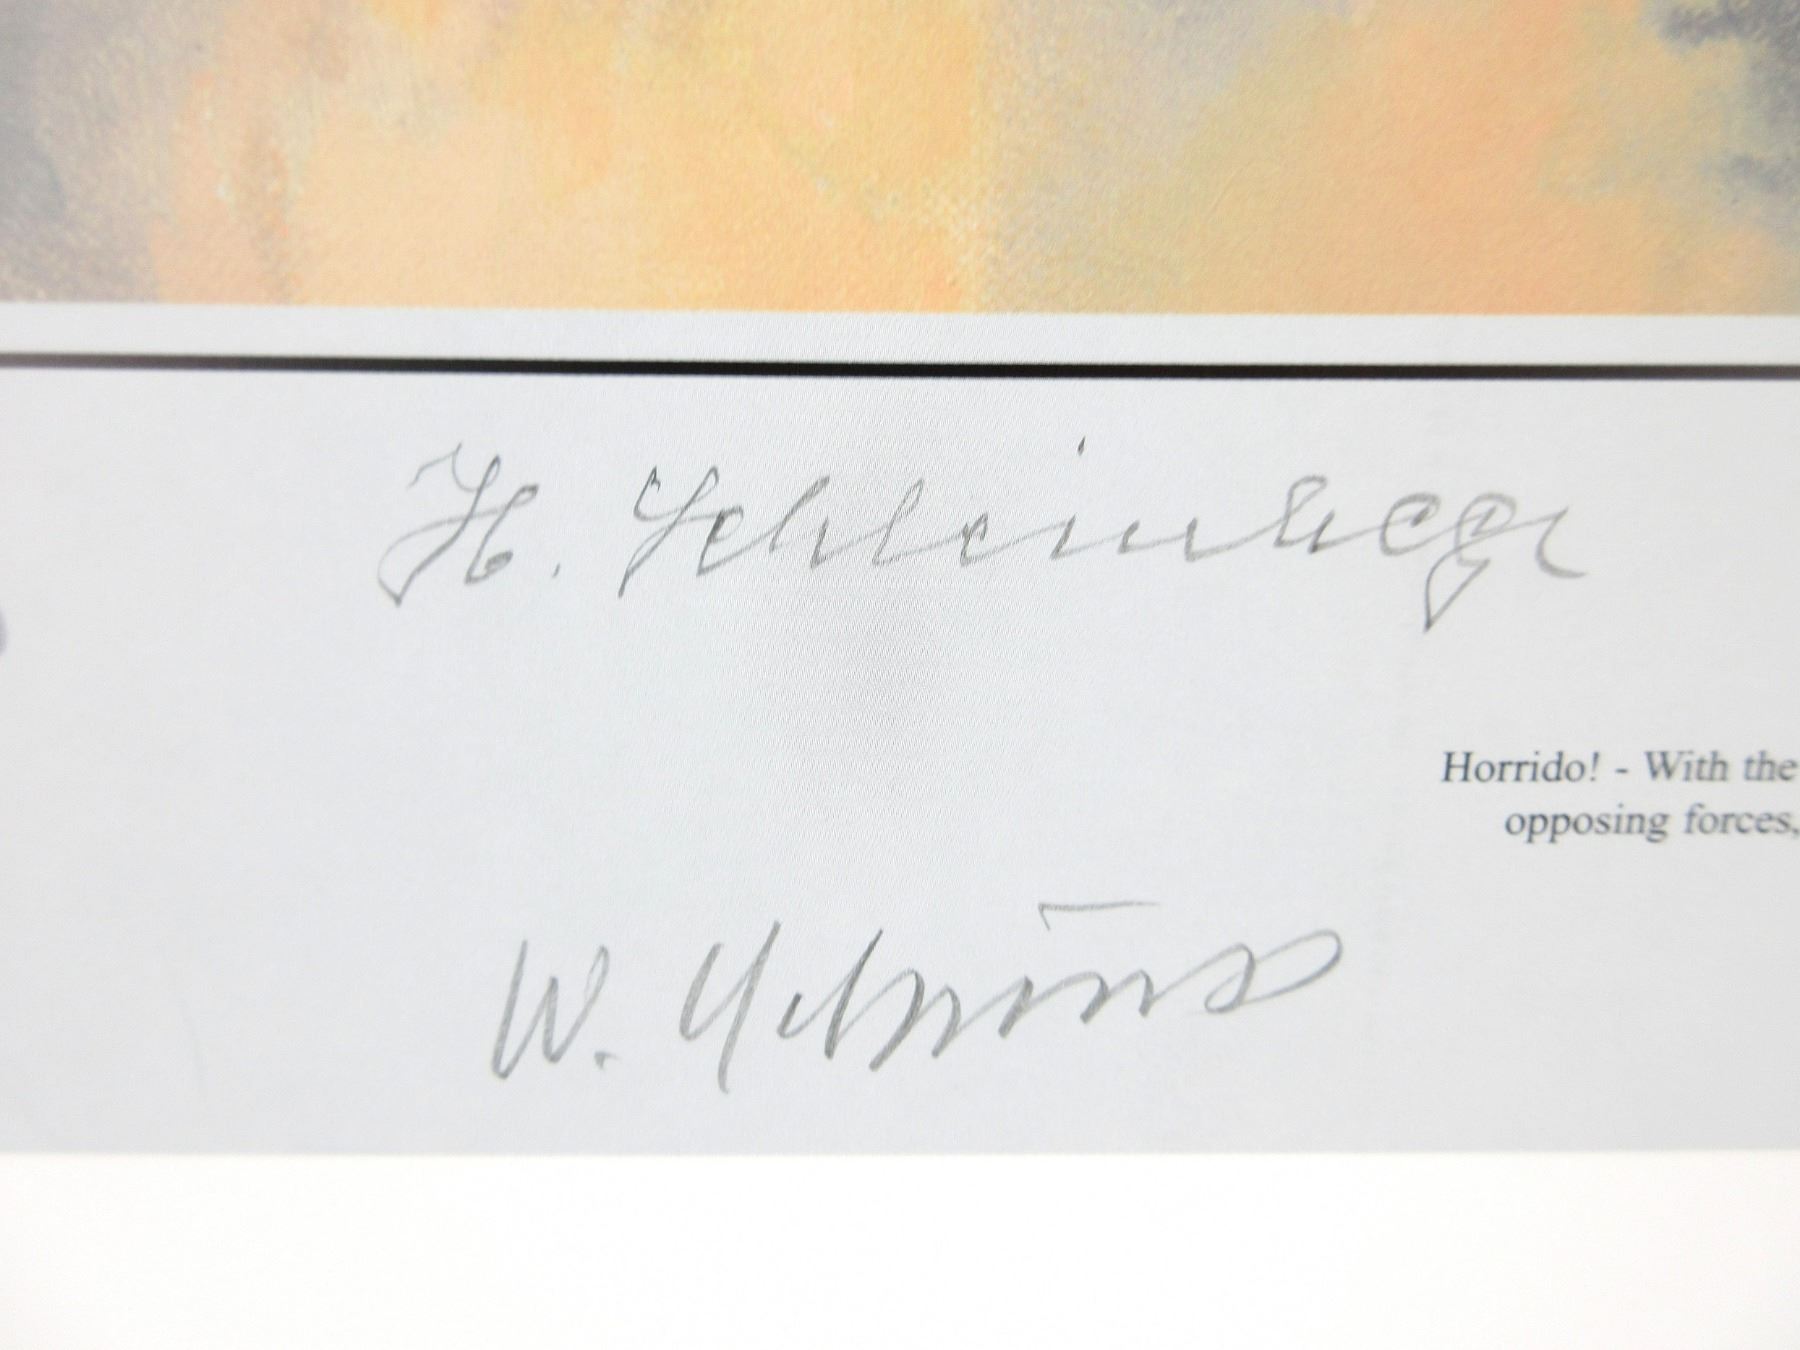 H. Schleinhege
Horrido! - With the
opposing forces,
W.